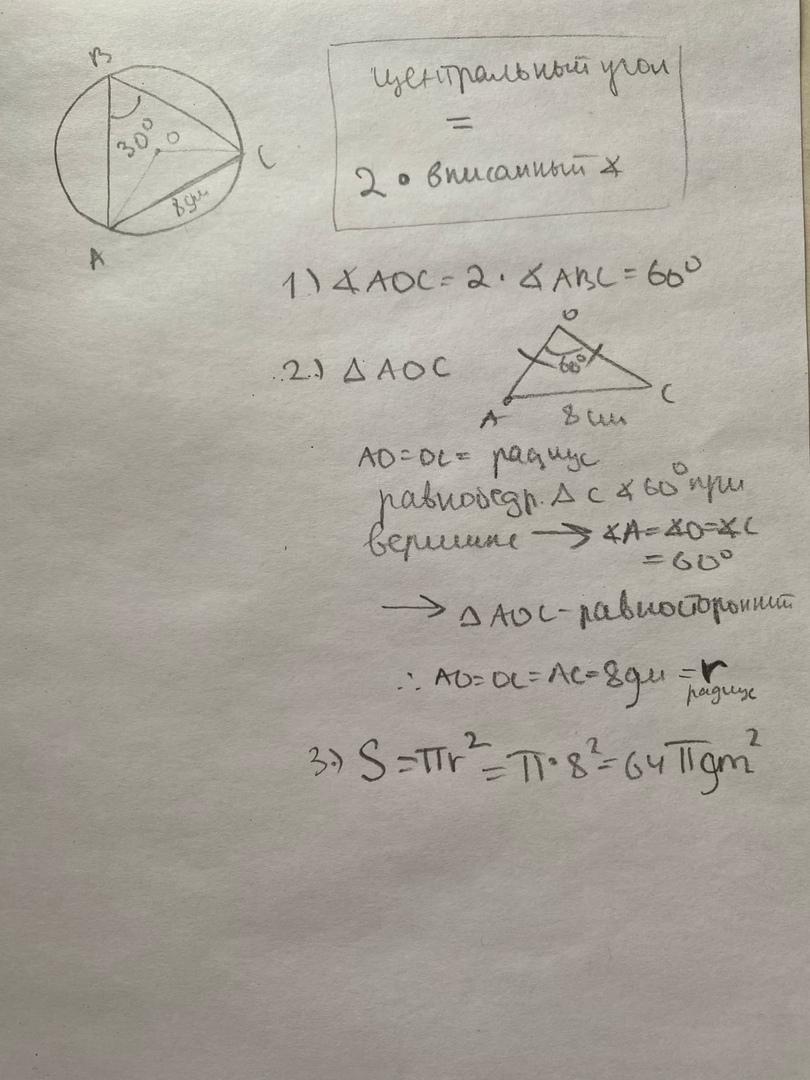 B
30°
O
C
8дм
A
центральный угол
=
2 • вписанный ∡
1) ∡ AOC = 2 · ∡ ABC = 60°
2.) Δ AOC
O
60°
A
C
AO = OC = радиус
равнобедр. Δ с ∡ 60° при
вершине → ∡A = ∡O = ∡C
= 60°
→ Δ AOC - равносторонний
∴ AO = OC = AC = 8дм = r
радиус
3.) S = πr² = π • 8² = 64 π дm²